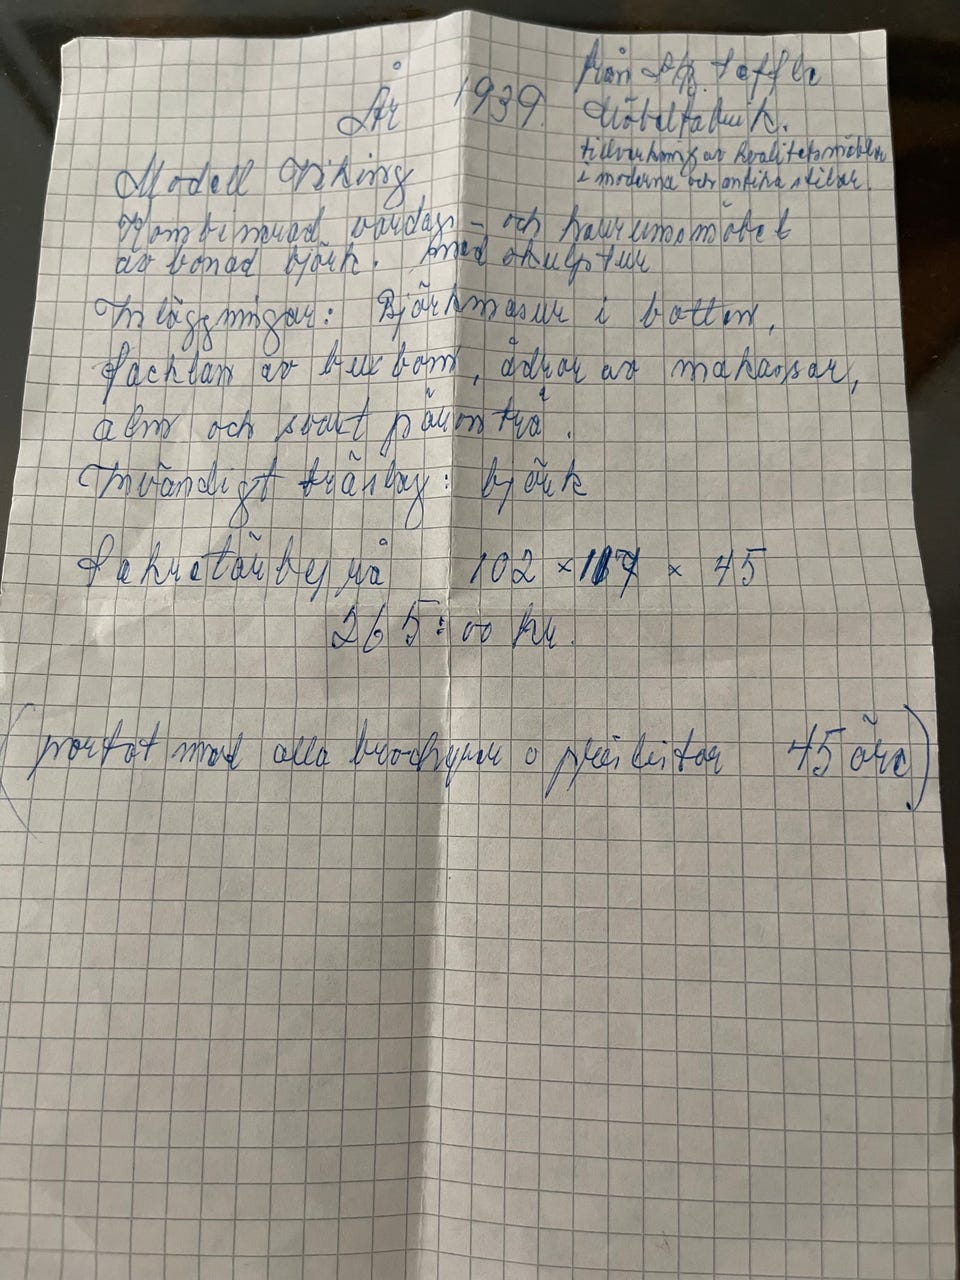 År 1939.
från toffler
Möbelfabrik.
tillverkning av kvalitetsmöbler
i moderna och antika stilar.
Modell Viking
Kombinerad vardags- och herrumsmöbel
av bonad björk. med skulptur
Inläggningar: Björkmasur i botten,
facklan av bux bom, ådror av makassar,
alm och svart päronträ.
Invändigt träslag: björk
Sekretärbyrå 102 × 117 × 45
265:00 kr.
(portot med alla brochyrer o prislistor 45 öre)